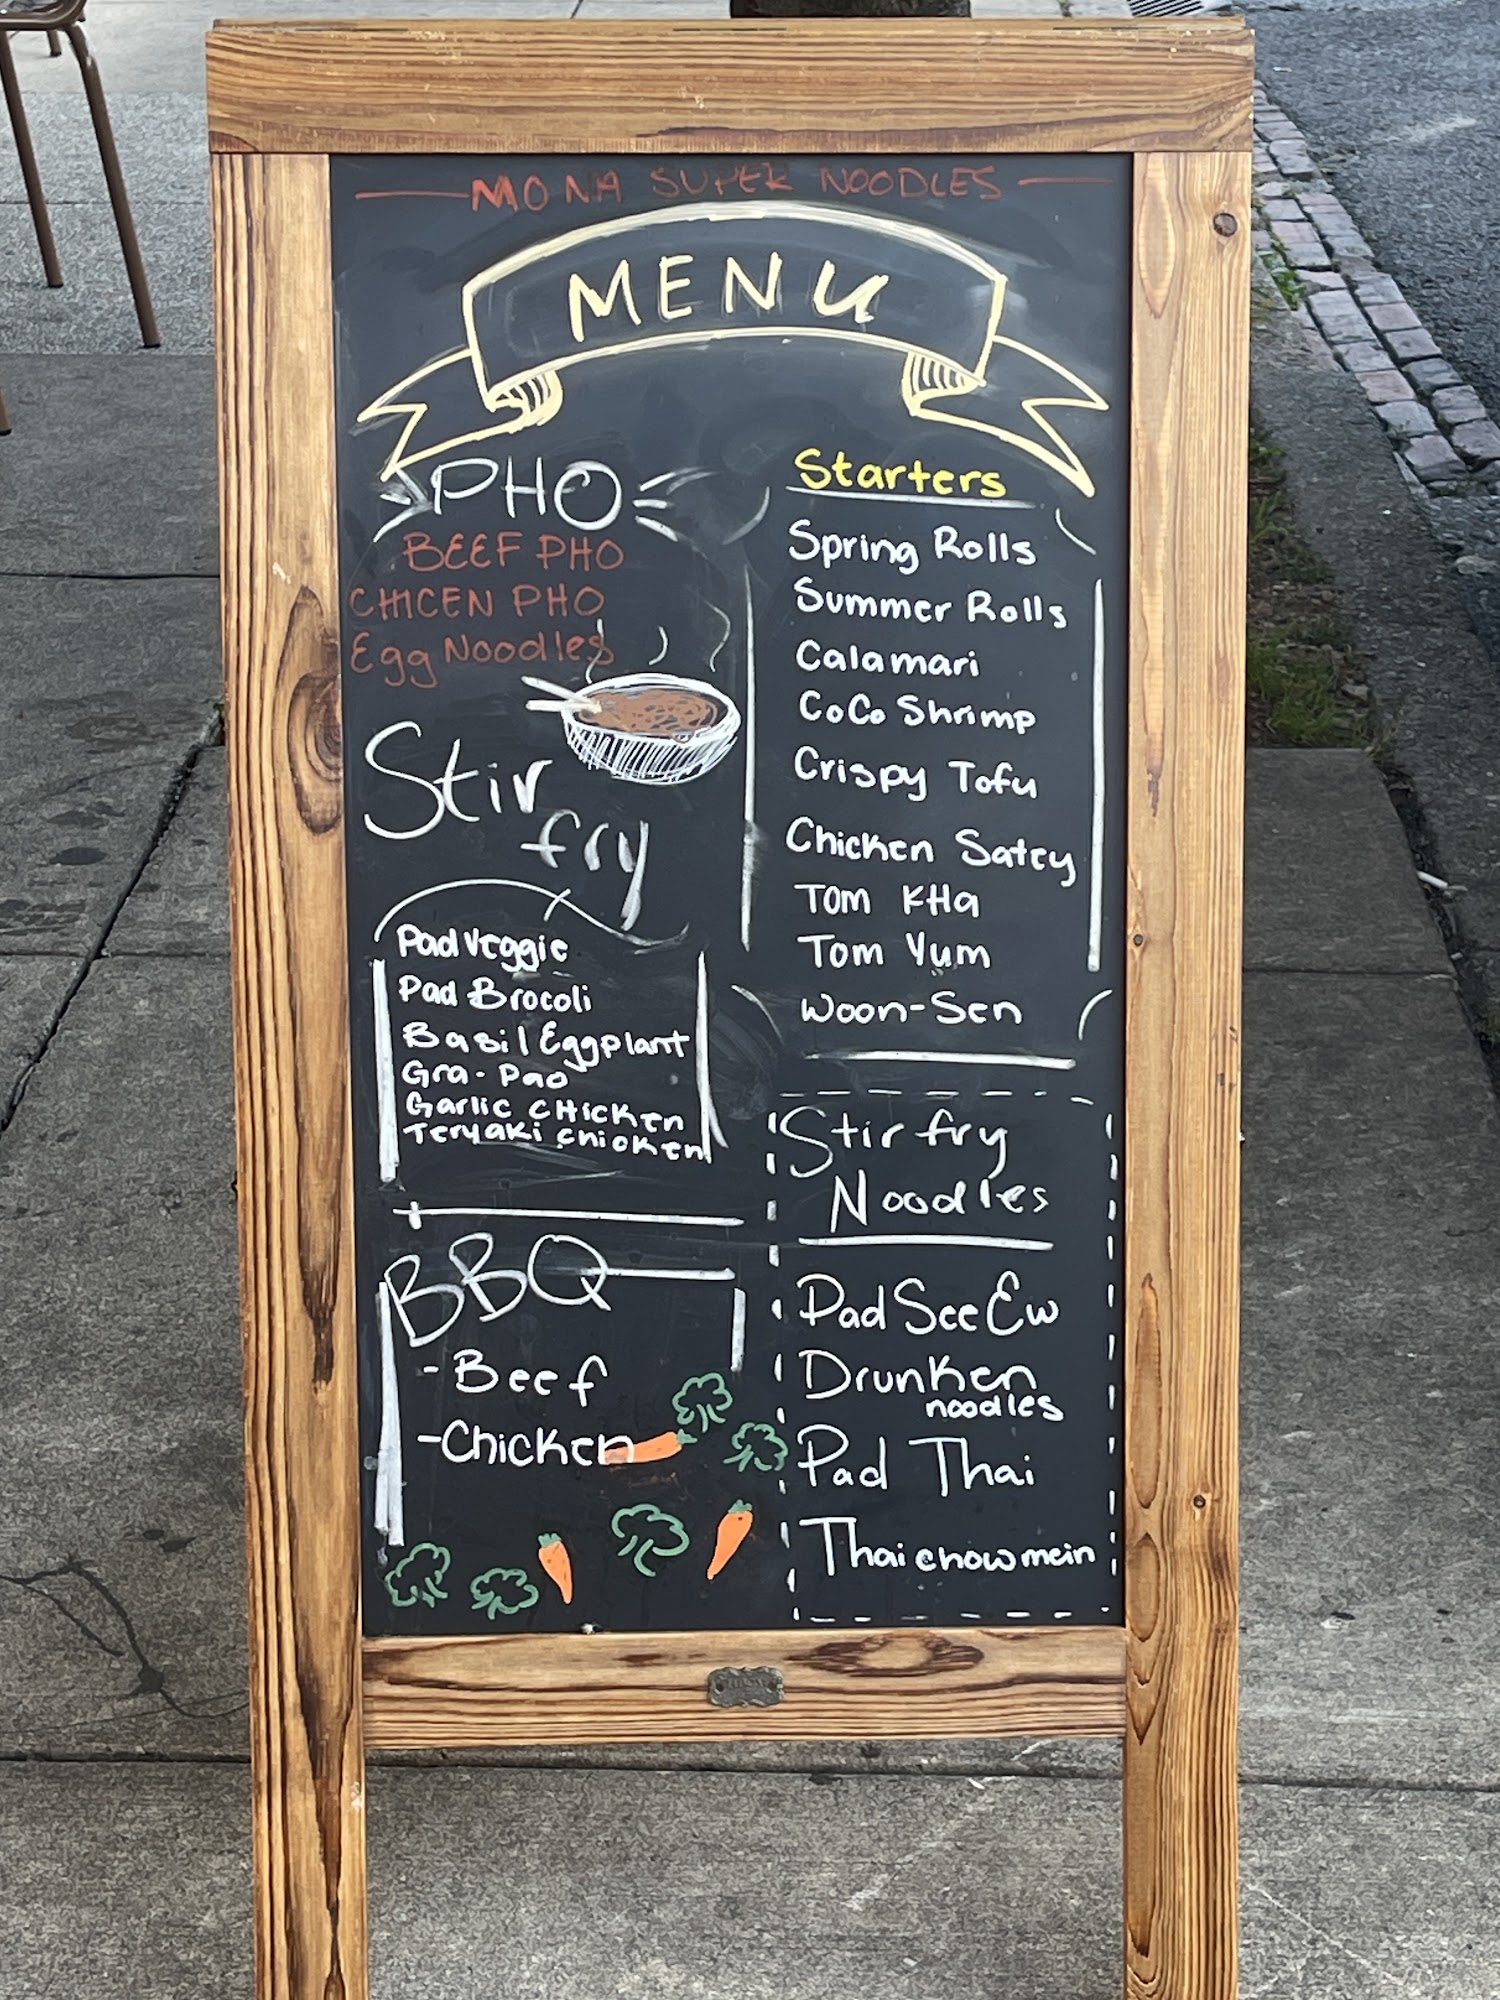 MONA SUPER NOODLES
MENU
PHO
BEEF PHO
CHICEN PHO
Egg Noodles
Stir
fry
Pad Veggie
Pad Brocoli
Basil Eggplant
Gra-Pao
Garlic CHicken
Teryaki chicken
BBQ
-Beef
-Chicken
Starters
Spring Rolls
Summer Rolls
Calamari
CoCo Shrimp
Crispy Tofu
Chicken Satey
Tom KHa
Tom Yum
Woon-Sen
Stir fry
Noodles
Pad See Ew
Drunken
noodles
Pad Thai
Thai chow mein